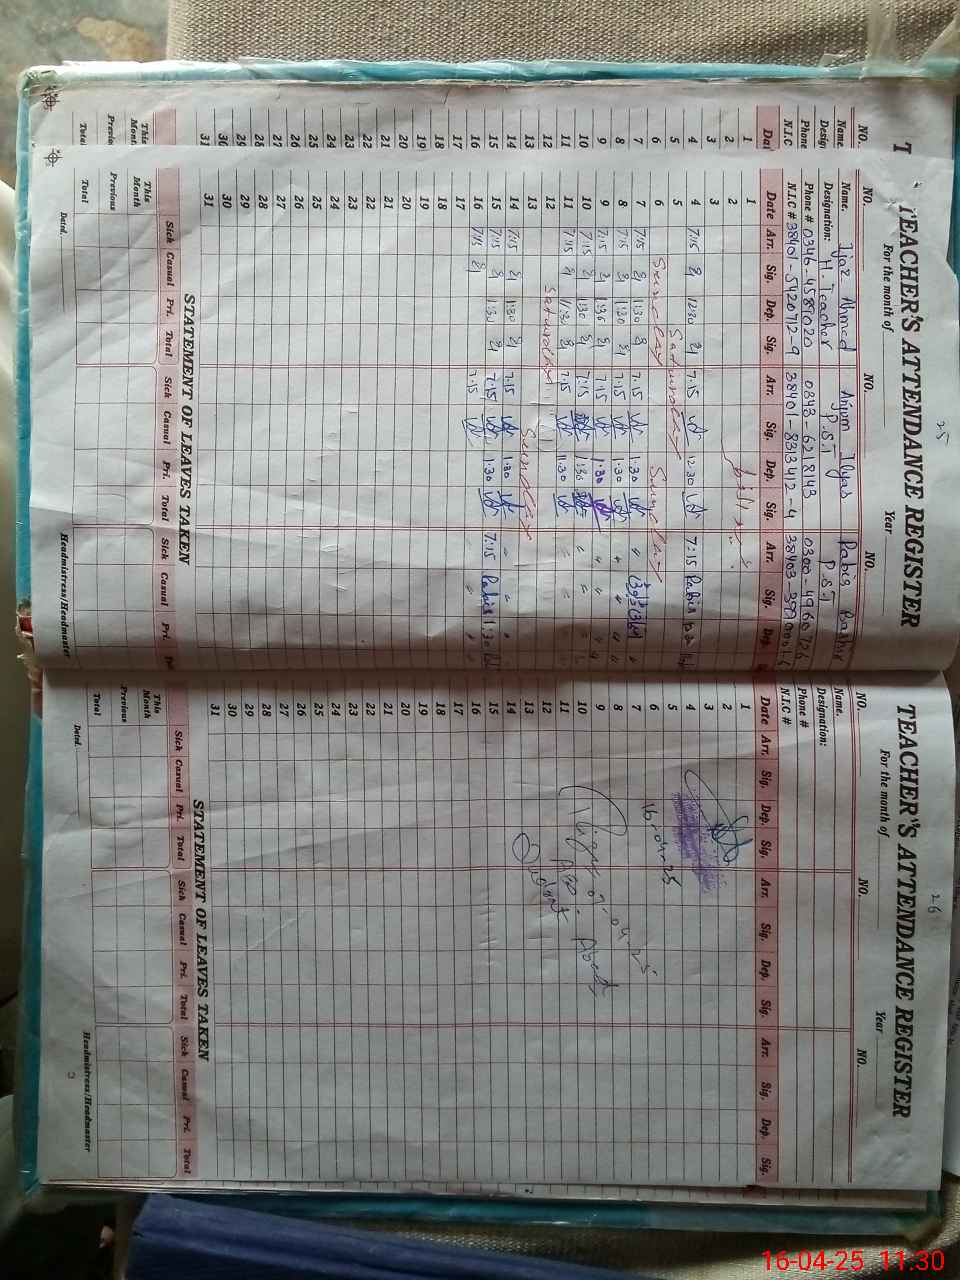 25
TEACHER'S ATTENDANCE REGISTER
For the month of Year
NO. NO. NO.
Name. Ijaz Ahmed Anjum Ilyas Rabia Bashir
Designation: H. Teacher P.S.T P.S.T
Phone # 0346-4589020 0343-6218143 0300-4960726
N.I.C # 38401-5420712-9 38401-8313412-4
Date Arr. Sig. Dep. Sig. Arr. Sig. Dep. Sig. Arr. Sig. Dep.
1
2
3
4 7:15 12:30 7:15 12:30 7:15 Rabia
5 Saturday
6 Sunday Sunday
7 7:15 1:30 7.15 1.30 "
8 7:15 1:30 7.15 1.30 " "
9 7:15 1:30 7.15 1.30 " "
10 7:15 1:30 7:15 1:30 " "
11 7:15 11:30 7.15 11.30 " "
12 Saturday
13 Sunday
14 7:15 1:30 7.15 1.30 " "
15 7:15 1:30 7.15 1.30 7:15 Rabia 1:30
16 7:15 7.15 " "
17
18
19
20
21
22
23
24
25
26
27
28
29
30
31
STATEMENT OF LEAVES TAKEN
Sick Casual Pri. Total Sick Casual Pri. Total Sick Casual Pri.
This Month
Previous
Total
Dated. Headmistress/Headmaster
26
TEACHER"S ATTENDANCE REGISTER
For the month of Year
NO. NO. NO.
Name.
Designation:
Phone #
N.I.C #
Date Arr. Sig. Dep. Sig. Arr. Sig. Dep. Sig. Arr. Sig. Dep. Sig.
1
2
3
4
5
6 16-04-25
7
8
9
10
11
12
13
14
15
16
17
18
19
20
21
22
23
24
25
26
27
28
29
30
31
STATEMENT OF LEAVES TAKEN
Sick Casual Pri. Total Sick Casual Pri. Total Sick Casual Pri. Total
This Month
Previous
Total
Dated. Headmistress/Headmaster
16-04-25 11:30